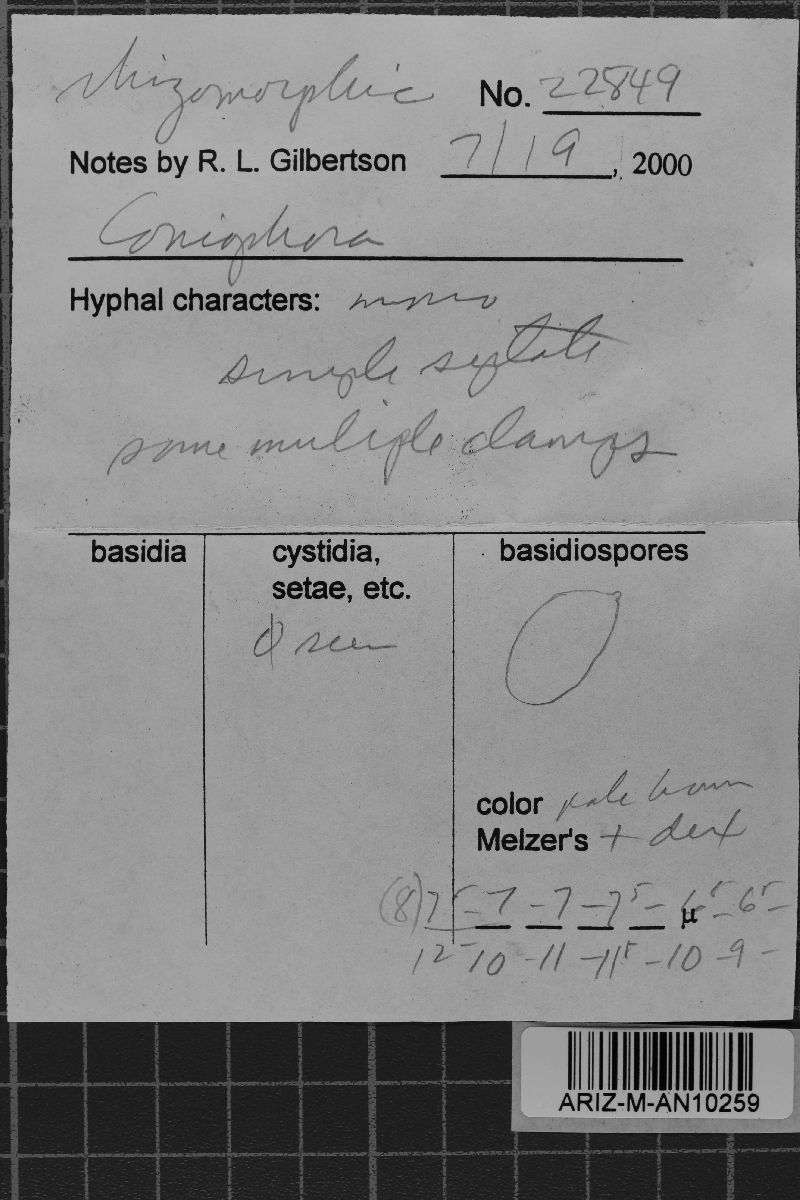 rhizomorphic No. 22849
Notes by R. L. Gilbertson 7/19, 2000
Coniophora
Hyphal characters: mono
simple septate
some multiple clamps
basidia cystidia, setae, etc. basidiospores
∅ seen
color pale brown
Melzer's + dext
(8) 7⁵ - 7 - 7 - 7⁵ - 6⁵ - 6⁵ - µ
12 - 10 - 11 - 11⁵ - 10 - 9 -
ARIZ-M-AN10259